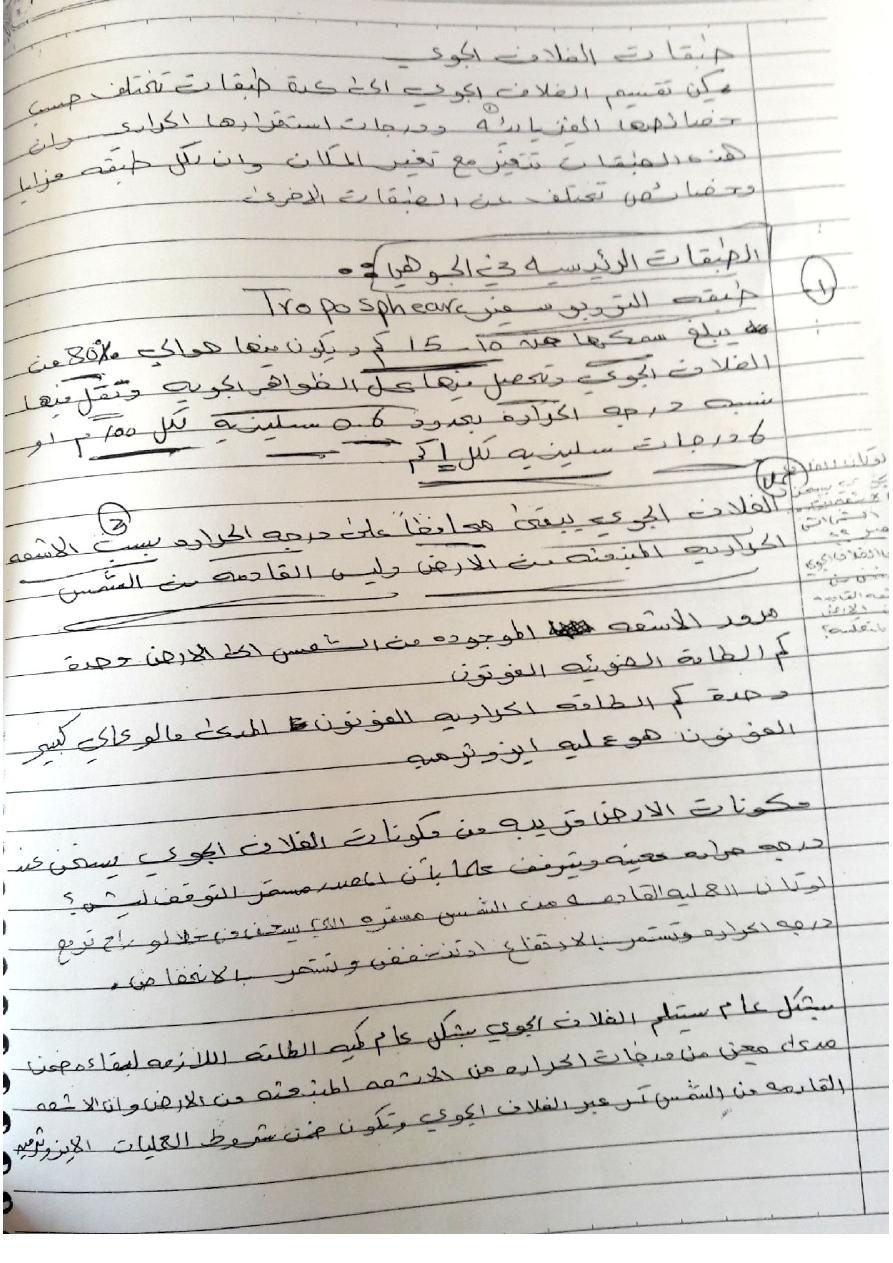 طبقات الغلاف الجوي
يمكن تقسيم الغلاف الجوي الى عدة طبقات تختلف حسب
خصائصها الفيزيائية ودرجات استقرارها الحراري وان
هذه الطبقات تتغير مع تغير المكان وان لكل طبقه مزايا
وخصائص تختلف عن الطبقات الاخرى
الطبقات الرئيسيه في الجو هي :
1
طبقه التروبوسفير Troposphearc
يبلغ سمكها 10 - 15 كم ويكون فيها حوالي 80% من
الغلاف الجوي وتحصل فيها كل الظواهر الجويه وتقل فيها
نسبه درجه الحرارة بحدود 0.6 سليزيه لكل 100 م او
6 درجات سليزيه لكل 1 كم
2
الغلاف الجوي يبقى محافظاً على درجه الحراره بسبب الاشعه
الحراريه المنبعثه من الارض وليس القادمه من الشمس
مرور الاشعه الموجوده من الشمس الى الارض وحدة
كم الطاقة الضوئيه الفوتون
وحدة كم الطاقه الحراريه الفونون المدى مالو عالي كبير
الفونون هو عليه ايزوثرميه
مكونات الارض قريبه من مكونات الغلاف الجوي يسخن عند
درجه حراره معينه ويتوقف علما بأن المصدر مستمر التوقف ليش؟
لو كان العمليه القادمه من الشمس مستمره راح ترتفع
درجه الحراره وتستمر بالارتفاع او تنخفض وتستمر بالانخفاض .
بشكل عام يستلم الغلاف الجوي بشكل عام كميه الطاقه اللازمه لبقاءه ضمن
مدى معين من درجات الحراره من الاشعه المنبعثه من الارض وان الاشعه
القادمه من الشمس تمر عبر الغلاف الجوي وتكون ضمن شروط العمليات الايزوثرميه